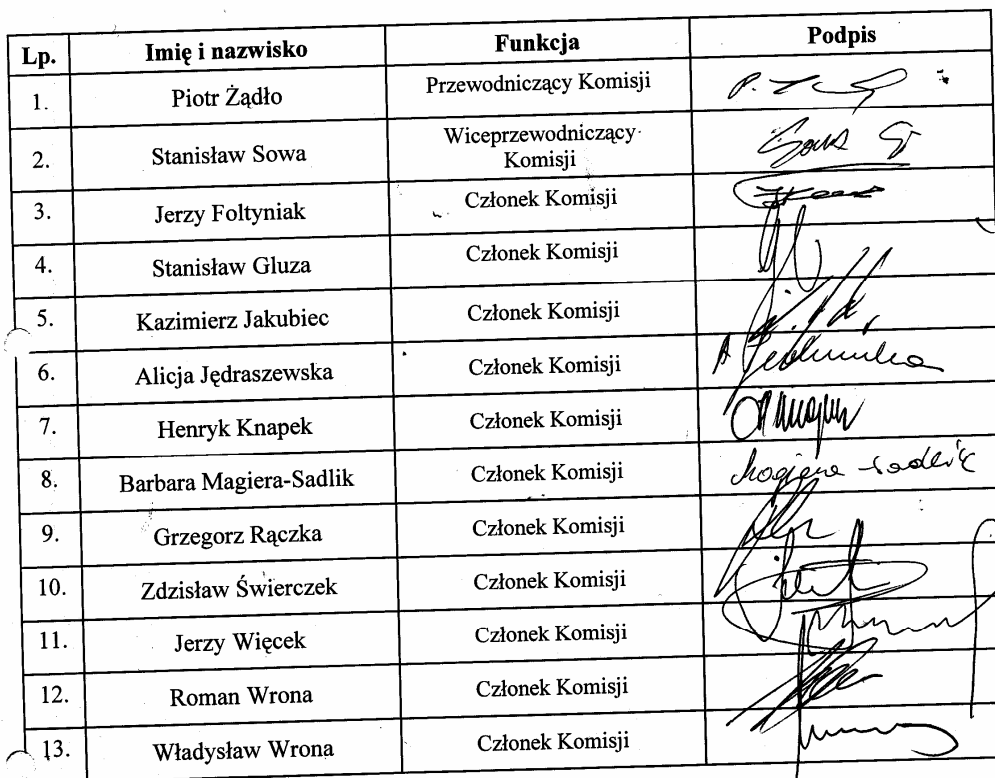 Lp. Imię i nazwisko Funkcja Podpis
1. Piotr Żądło Przewodniczący Komisji
2. Stanisław Sowa Wiceprzewodniczący Komisji Sowa St
3. Jerzy Foltyniak Członek Komisji
4. Stanisław Gluza Członek Komisji
5. Kazimierz Jakubiec Członek Komisji
6. Alicja Jędraszewska Członek Komisji
7. Henryk Knapek Członek Komisji
8. Barbara Magiera-Sadlik Członek Komisji Magiera-Sadlik
9. Grzegorz Rączka Członek Komisji
10. Zdzisław Świerczek Członek Komisji
11. Jerzy Więcek Członek Komisji
12. Roman Wrona Członek Komisji
13. Władysław Wrona Członek Komisji